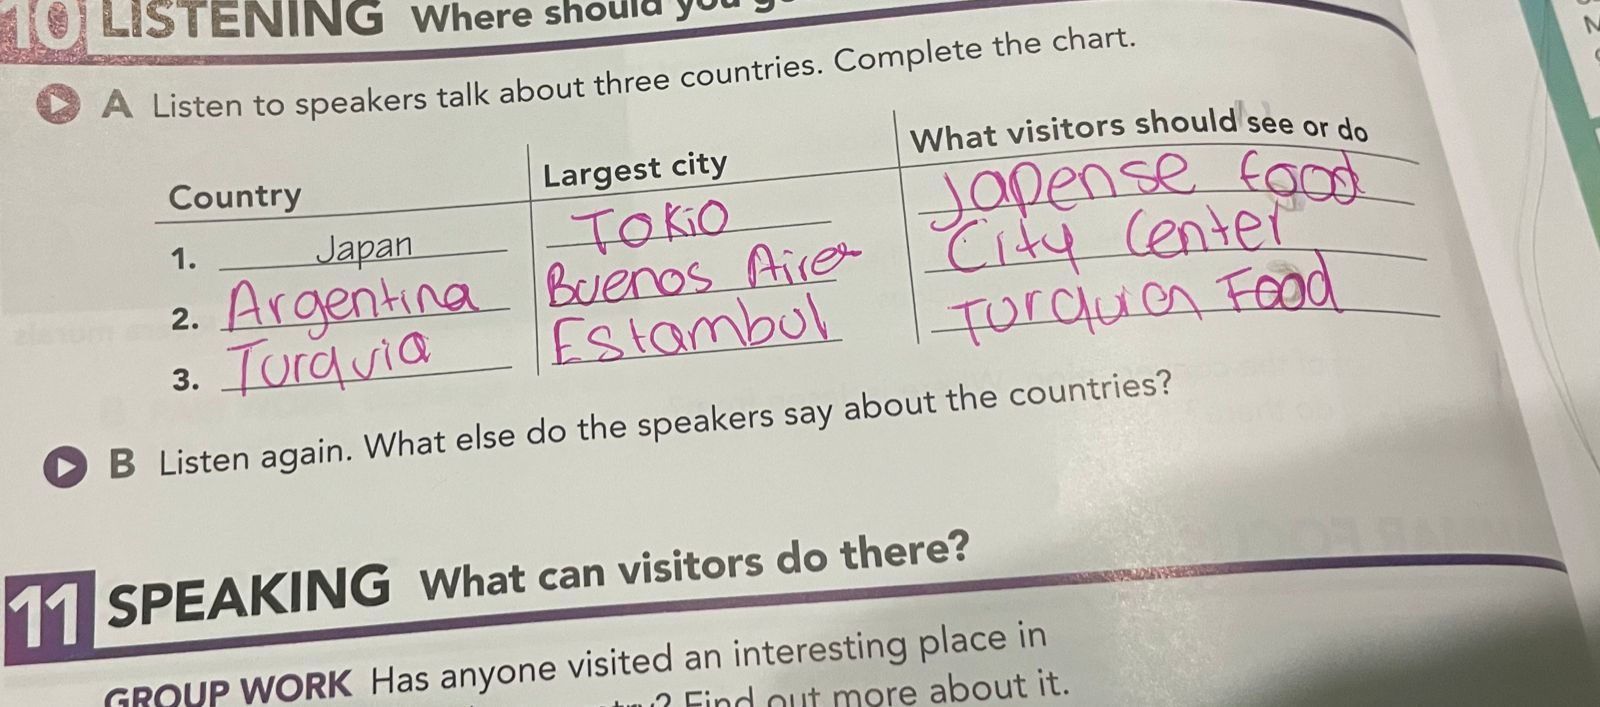 10 LISTENING Where should you
A Listen to speakers talk about three countries. Complete the chart.
Country Largest city What visitors should see or do
1. Japan Tokio Japense food
2. Argentina Buenos Aires City Center
3. Turquia Estambul Turquion Food
B Listen again. What else do the speakers say about the countries?
11 SPEAKING What can visitors do there?
GROUP WORK Has anyone visited an interesting place in
? Find out more about it.